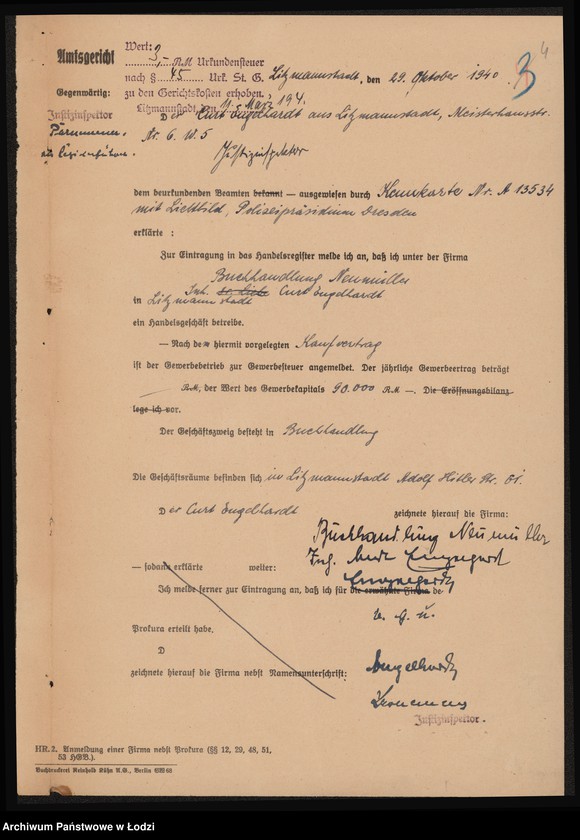 4
3
Amtsgericht
Wert: 3,- RM Urkundensteuer
nach § 45 Urk. St. G.
zu den Gerichtskosten erhoben.
Litzmannstadt, den 11. März 194.
Litzmannstadt, den 29. Oktober 1940.
Gegenwärtig:
Justizinspektor
als
Der Curt Engelhardt aus Litzmannstadt, Meisterhausstr.
Nr. 6. W. 5
Justizinspektor
dem beurkundenden Beamten bekannt — ausgewiesen durch Kennkarte Nr. A 13534
mit Lichtbild, Polizeipräsidium Dresden
erklärte :
Zur Eintragung in das Handelsregister melde ich an, daß ich unter der Firma
Buchhandlung Neumüller
Inh. Curt Engelhardt
in Litzmannstadt
ein Handelsgeschäft betreibe.
— Nach dem hiermit vorgelegten Kaufvertrag
ist der Gewerbebetrieb zur Gewerbesteuer angemeldet. Der jährliche Gewerbeertrag beträgt
RM, der Wert des Gewerbekapitals 90.000 RM —. Die Eröffnungsbilanz
lege ich vor.
Der Geschäftszweig besteht in Buchhandlung
Die Geschäftsräume befinden sich in Litzmannstadt Adolf Hitler Str.
Der Curt Engelhardt zeichnete hierauf die Firma:
Buchhandlung Neumüller
Inh. Curt Engelhardt
Engelhardt
— sodann erklärte weiter:
Ich melde ferner zur Eintragung an, daß ich für die erwähnte Firma de-
v. g. u.
Prokura erteilt habe.
D
zeichnete hierauf die Firma nebst Namensunterschrift:
Engelhardt
Justizinspektor.
HR. 2. Anmeldung einer Firma nebst Prokura (§§ 12, 29, 48, 51,
53 HGB.).
Buchdruckerei Reinhold Kühn A.G., Berlin SW 68
Archiwum Państwowe w Łodzi